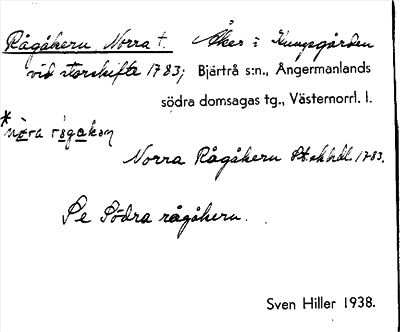 Rågåkern Norra t. Åker: Kungsgården
vid storskifte 1783; Bjärtrå s:n., Ångermanlands
södra domsagas tg., Västernorrl. l.
*nora rogakəṇ
Norra Rågåkern St.skhdl. 1783.
Se Södra rågåkern.
Sven Hiller 1938.